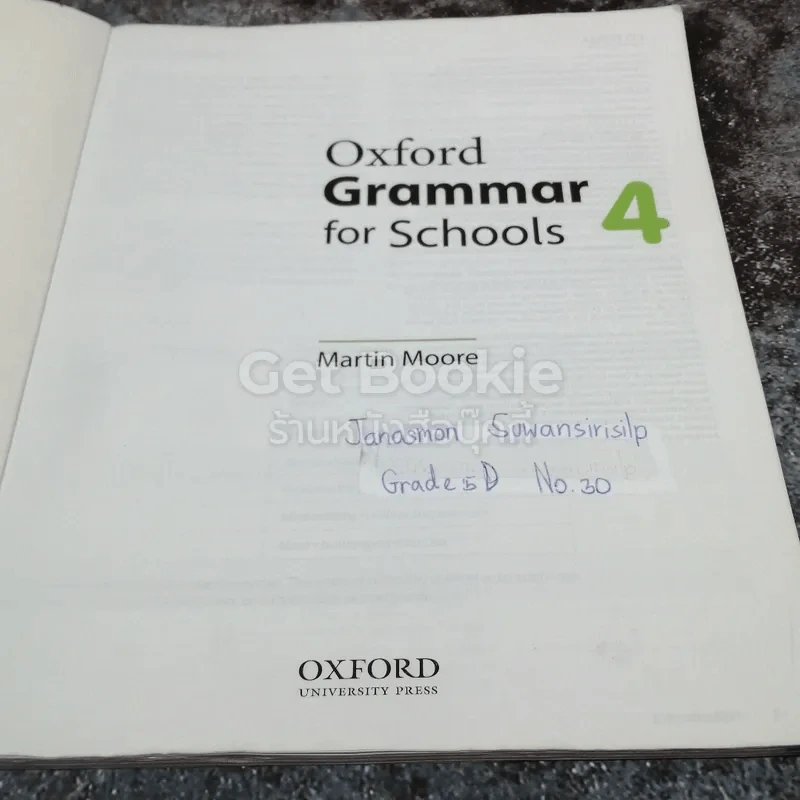 Oxford
Grammar 4
for Schools
Martin Moore
Get Bookie
ร้านหนังสือบุ๊คกี้
Janasmon Suwansirisilp
Grade 5D No.30
OXFORD
UNIVERSITY PRESS